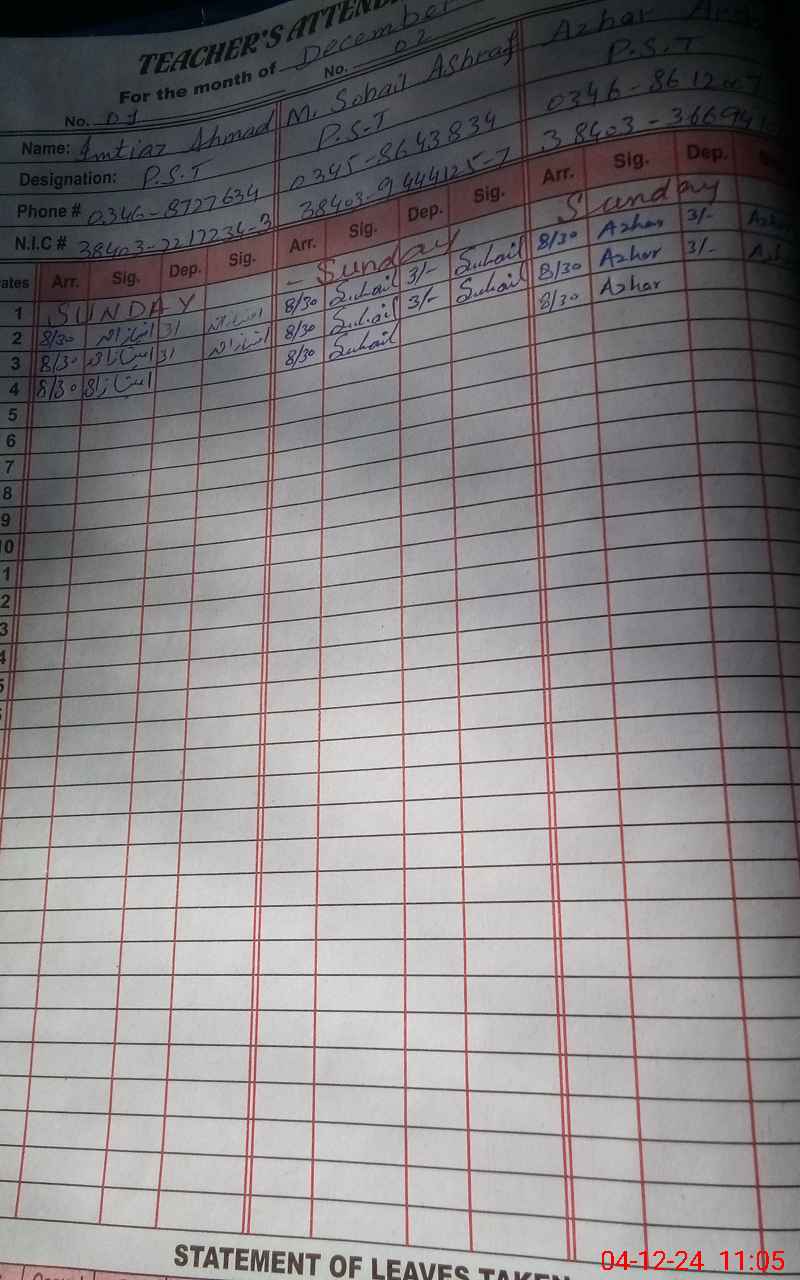 TEACHER'S ATTEND
For the month of December
No. 01 No. 02
Name: Imtiaz Ahmad M. Sohail Ashraf Azhar
Designation: P.S.T P.S.T P.S.T
Phone # 0346-8727634 0345-8643834 0346-8612
N.I.C # 38403-2217234-3 38403-9444125-7 38403-36694
ates Arr. Sig. Dep. Sig. Arr. Sig. Dep. Sig. Arr. Sig. Dep.
1 SUNDAY - Sunday Sunday
2 8/30 امتیاز احمد 3/ امتیاز احمد 8/30 Suhail 3/- Suhail 8/30 Azhar 3/-
3 8/30 امتیاز احمد 3/ امتیاز احمد 8/30 Suhail 3/- Suhail 8/30 Azhar 3/-
4 8/30 امتیاز 8/30 Suhail 8/30 Azhar
5
6
7
8
9
0
1
2
3
4
5
STATEMENT OF LEAVES TAKEN
04-12-24 11:05